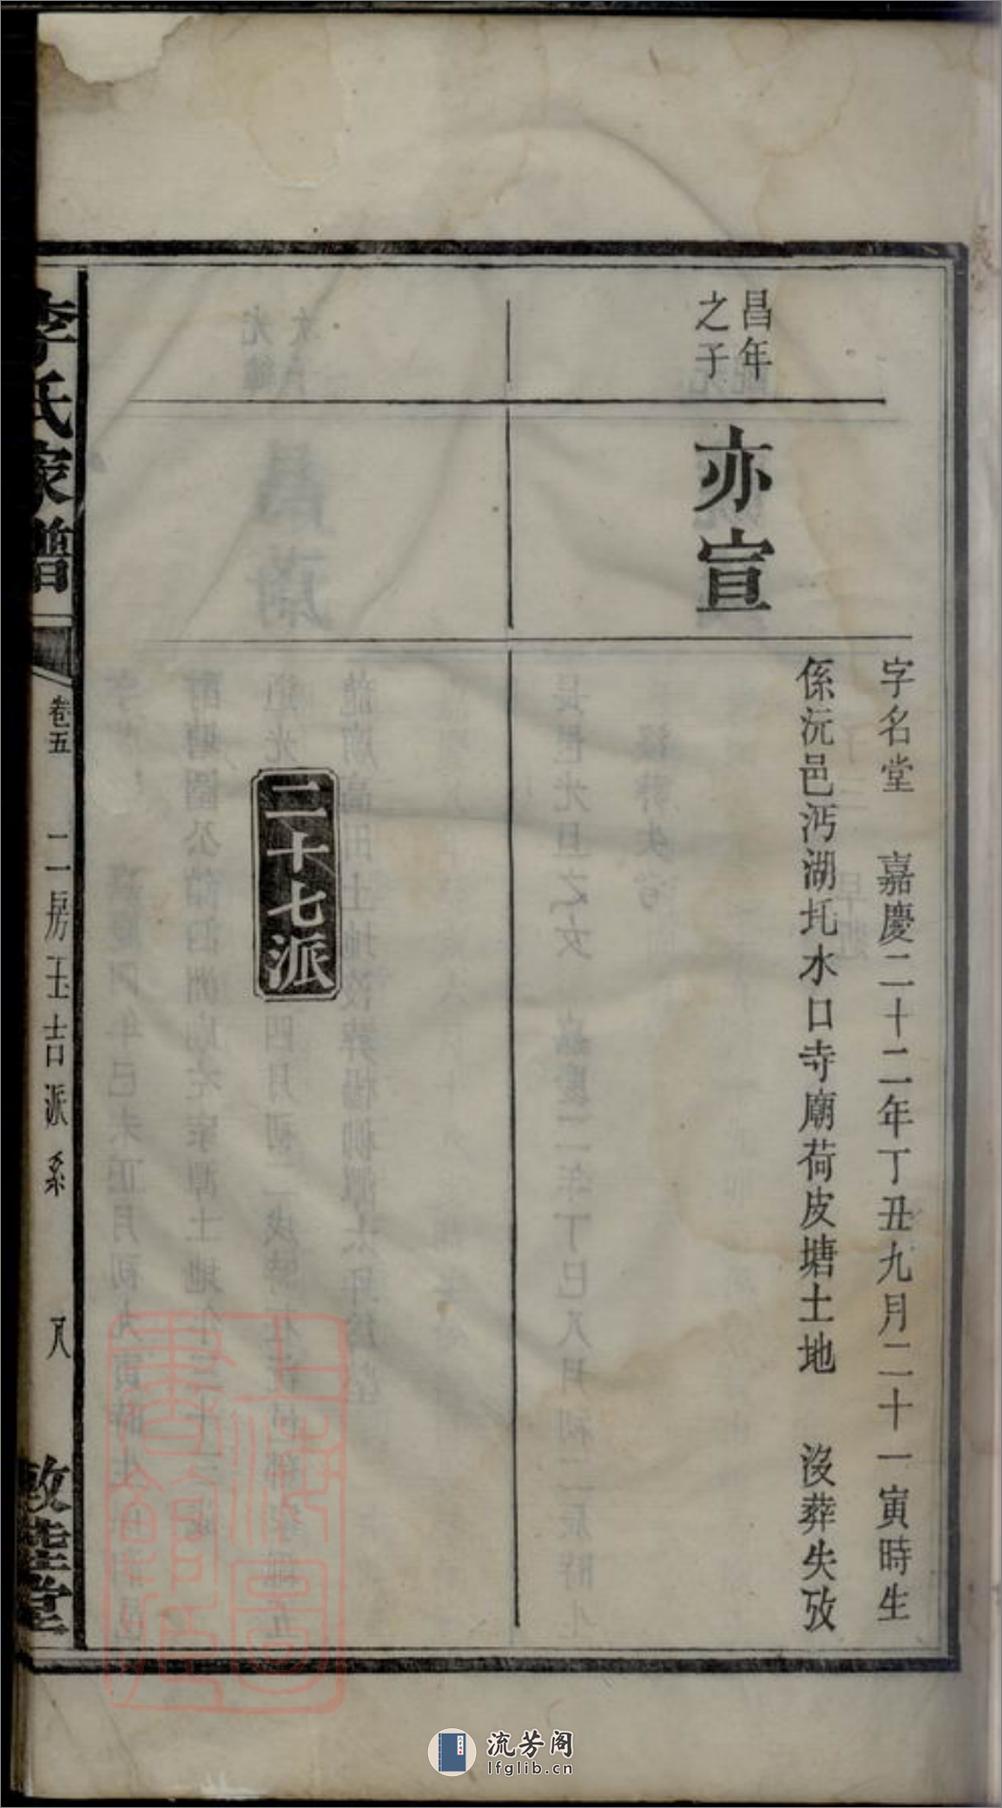 昌年
之子
亦宣
字名堂 嘉慶二十二年丁丑九月二十一寅時生
係沅邑沔湖圫水口寺廟荷皮塘土地 沒葬失攷
二十七派
李氏家譜
卷五 二房玉吉派系 八
敦睦堂
上海圖書館藏
流芳阁
lfglib.cn